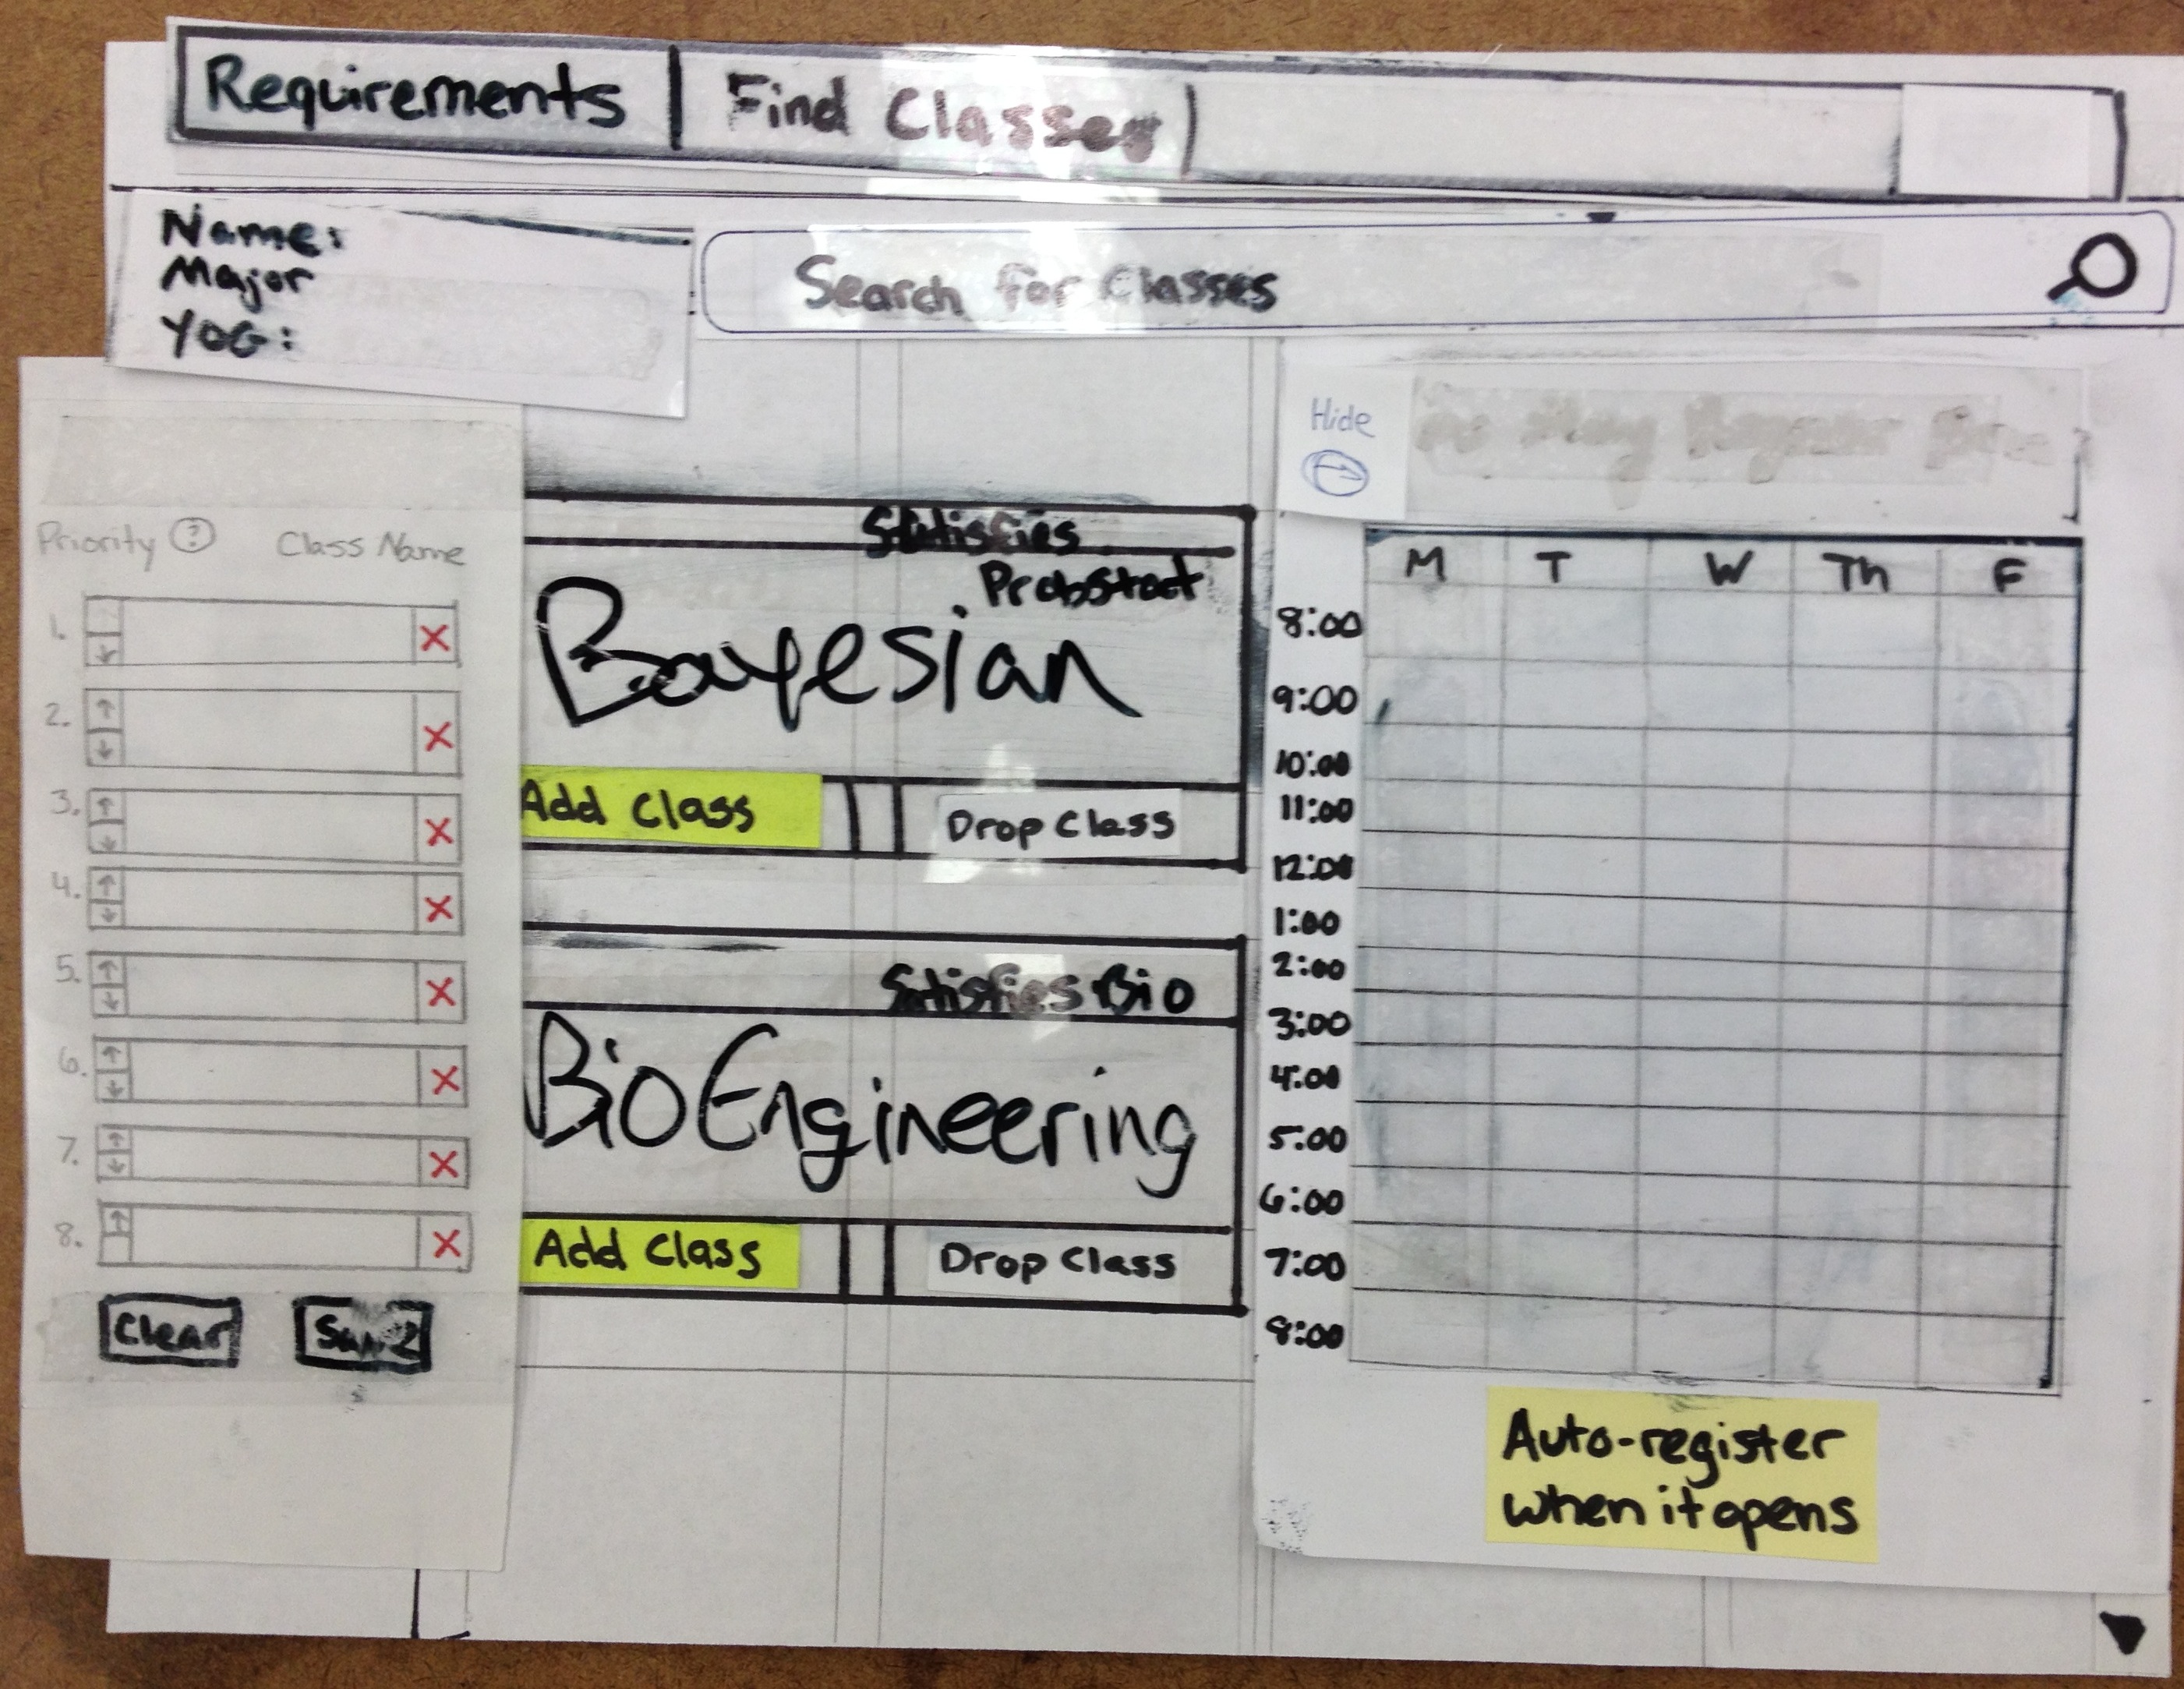 Requirements | Find Classes
Name:
Major
YOG:
Search for Classes
Hide
Priority ? Class Name
1.
2.
3.
4.
5.
6.
7.
8.
Clear
Satisfies
Probstat
Bayesian
Add Class
Drop Class
Satisfies Bio
BioEngineering
Add Class
Drop Class
M T W Th F
8:00
9:00
10:00
11:00
12:00
1:00
2:00
3:00
4:00
5:00
6:00
7:00
8:00
Auto-register
when it opens